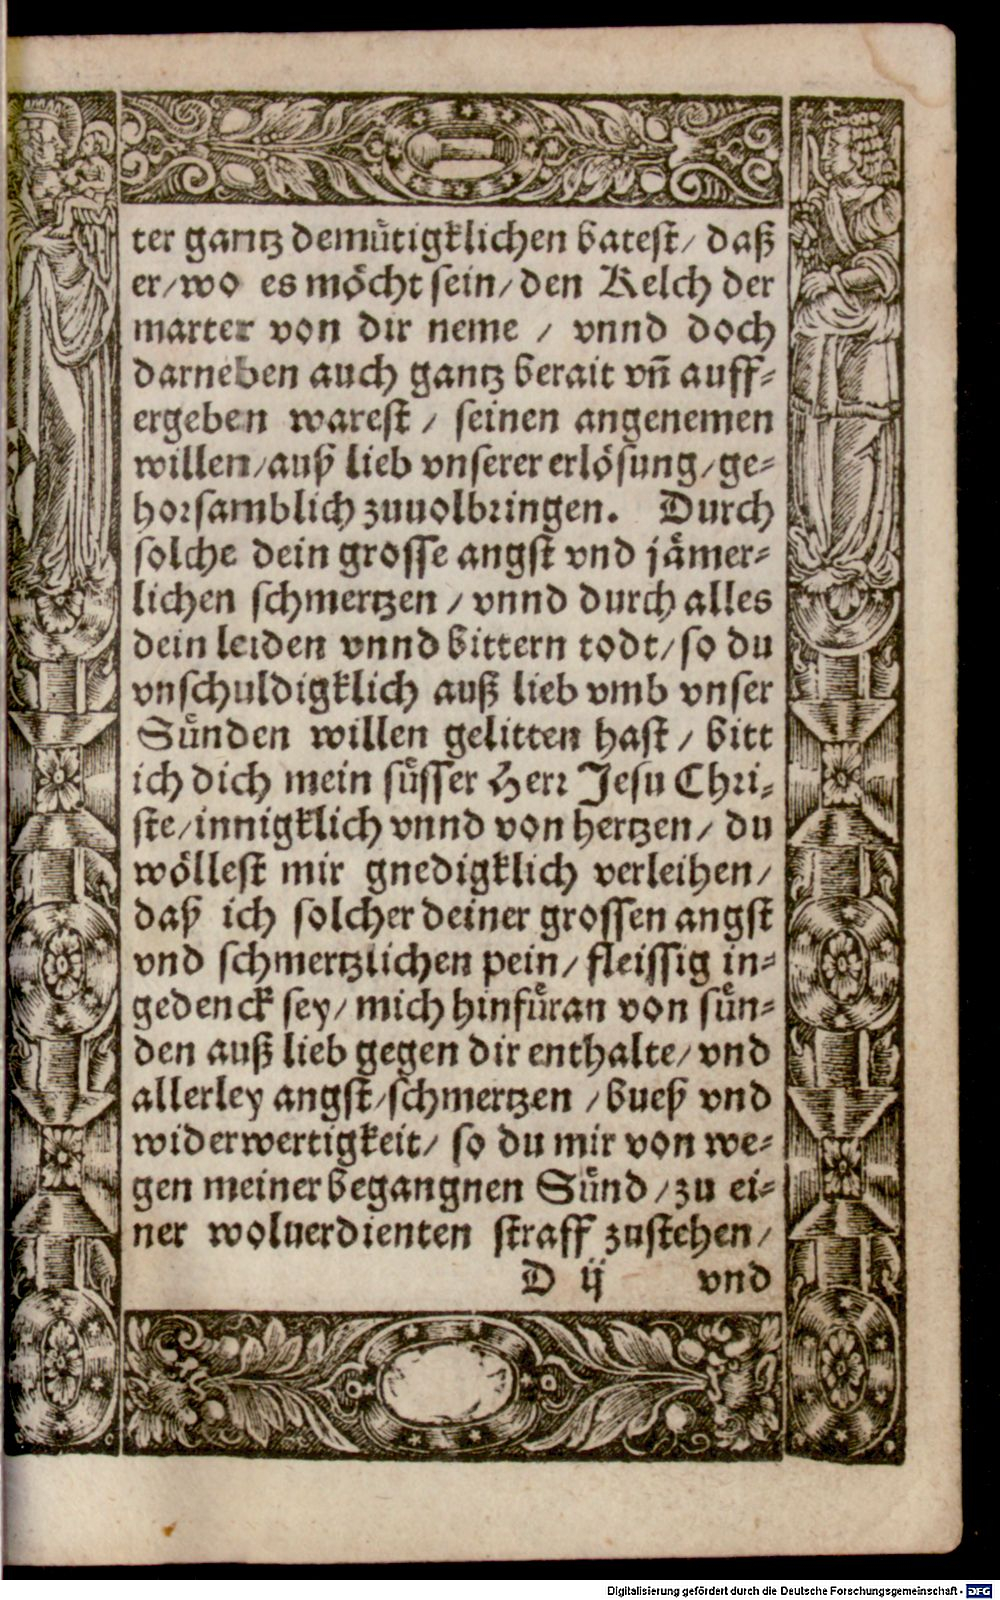 ter gantz demuͤtigklichen batest/ daß
er/wo es moͤcht sein/den Kelch der
marter von dir neme / vnnd doch
darneben auch gantz berait vñ auff-
ergeben warest / seinen angenemen
willen/auß lieb vnserer erloͤsung/ge-
horsamblich zuuolbringen. Durch
solche dein grosse angst vnd jaͤmer-
lichen schmertzen / vnnd durch alles
dein leiden vnnd bittern todt/so du
vnschuldigklich auß lieb vmb vnser
Suͤnden willen gelitten hast / bitt
ich dich mein suͤsser Herr Jesu Chri-
ste/innigklich vnnd von hertzen/ du
woͤllest mir gnedigklich verleihen/
daß ich solcher deiner grossen angst
vnd schmertzlichen pein/fleissig in-
gedenck sey/mich hinfuͤran von suͤn-
den auß lieb gegen dir enthalte/vnd
allerley angst/schmertzen /bueß vnd
widerwertigkeit/ so du mir von we-
gen meiner begangnen Suͤnd/zu ei-
ner woluerdienten straff zustehen/
D ij vnd
Digitalisierung gefördert durch die Deutsche Forschungsgemeinschaft - DFG